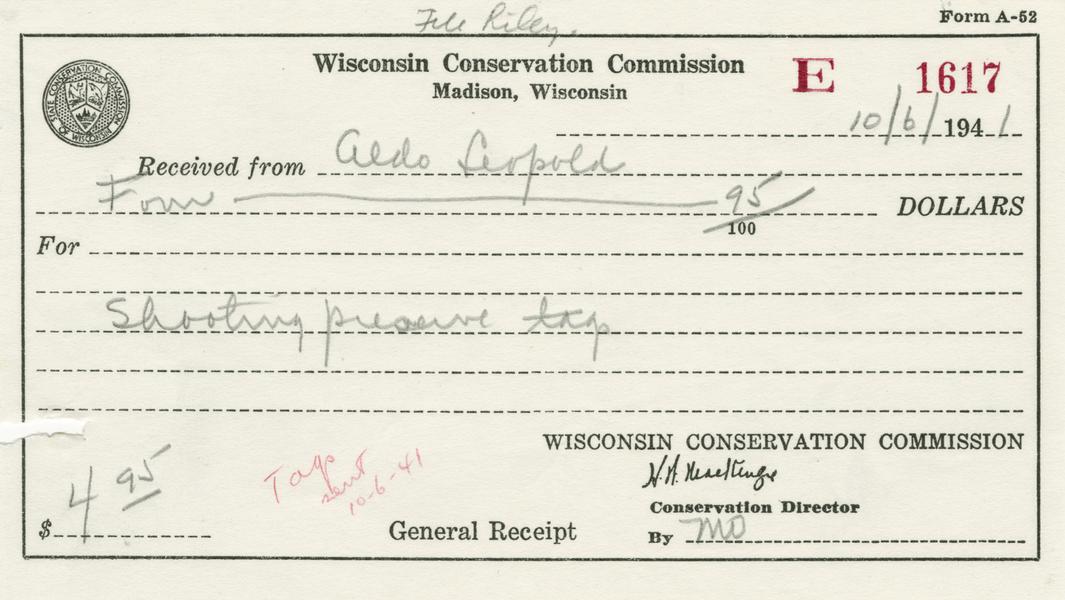 File Riley.
Form A-52
Wisconsin Conservation Commission
Madison, Wisconsin
E 1617
STATE CONSERVATION COMMISSION OF WISCONSIN
10/6/ 1941
Received from Aldo Leopold
Four 95/100 DOLLARS
For
Shooting preserve tags
WISCONSIN CONSERVATION COMMISSION
Tags
sent
10-6-41
Conservation Director
$ 4 95
General Receipt
By MO